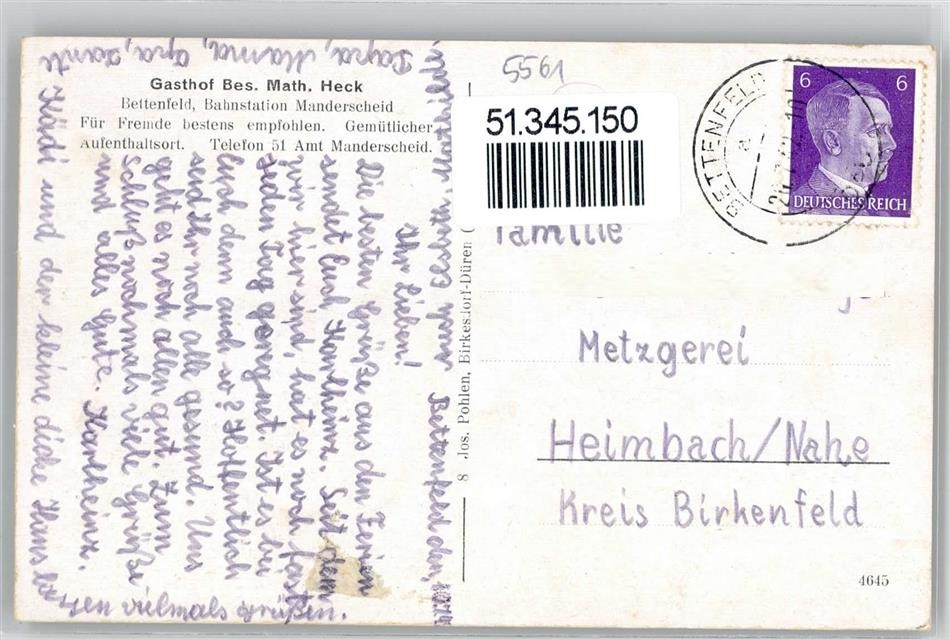 Gasthof Bes. Math. Heck
Bettenfeld, Bahnstation Manderscheid
Für Fremde bestens empfohlen. Gemütlicher
Aufenthaltsort. Telefon 51 Amt Manderscheid.
Bettenfeld, den
Ihr Lieben!
Die besten Grüße aus den Ferien
sendet Euch Karlheinz. Seit dem
wir hier sind, hat es noch fast
jeden Tag geregnet. Ist es bei
Euch denn auch so? Hoffentlich
seid Ihr noch alle gesund. Uns
geht es noch allen gut. Zum
Schluß nochmals viele Grüße
und alles Gute. Karlheinz.
auch Elsbeth,
Papa, Mama, Opa, Tante
Klödi und der kleine dicke Hans
vielmals grüßen.
8 Jos. Pohlen, Birkesdorf-Düren (
5561
51.345.150
BETTENFELD
6 6
DEUTSCHES REICH
Familie
Metzgerei
Heimbach/Nahe
Kreis Birkenfeld
4645